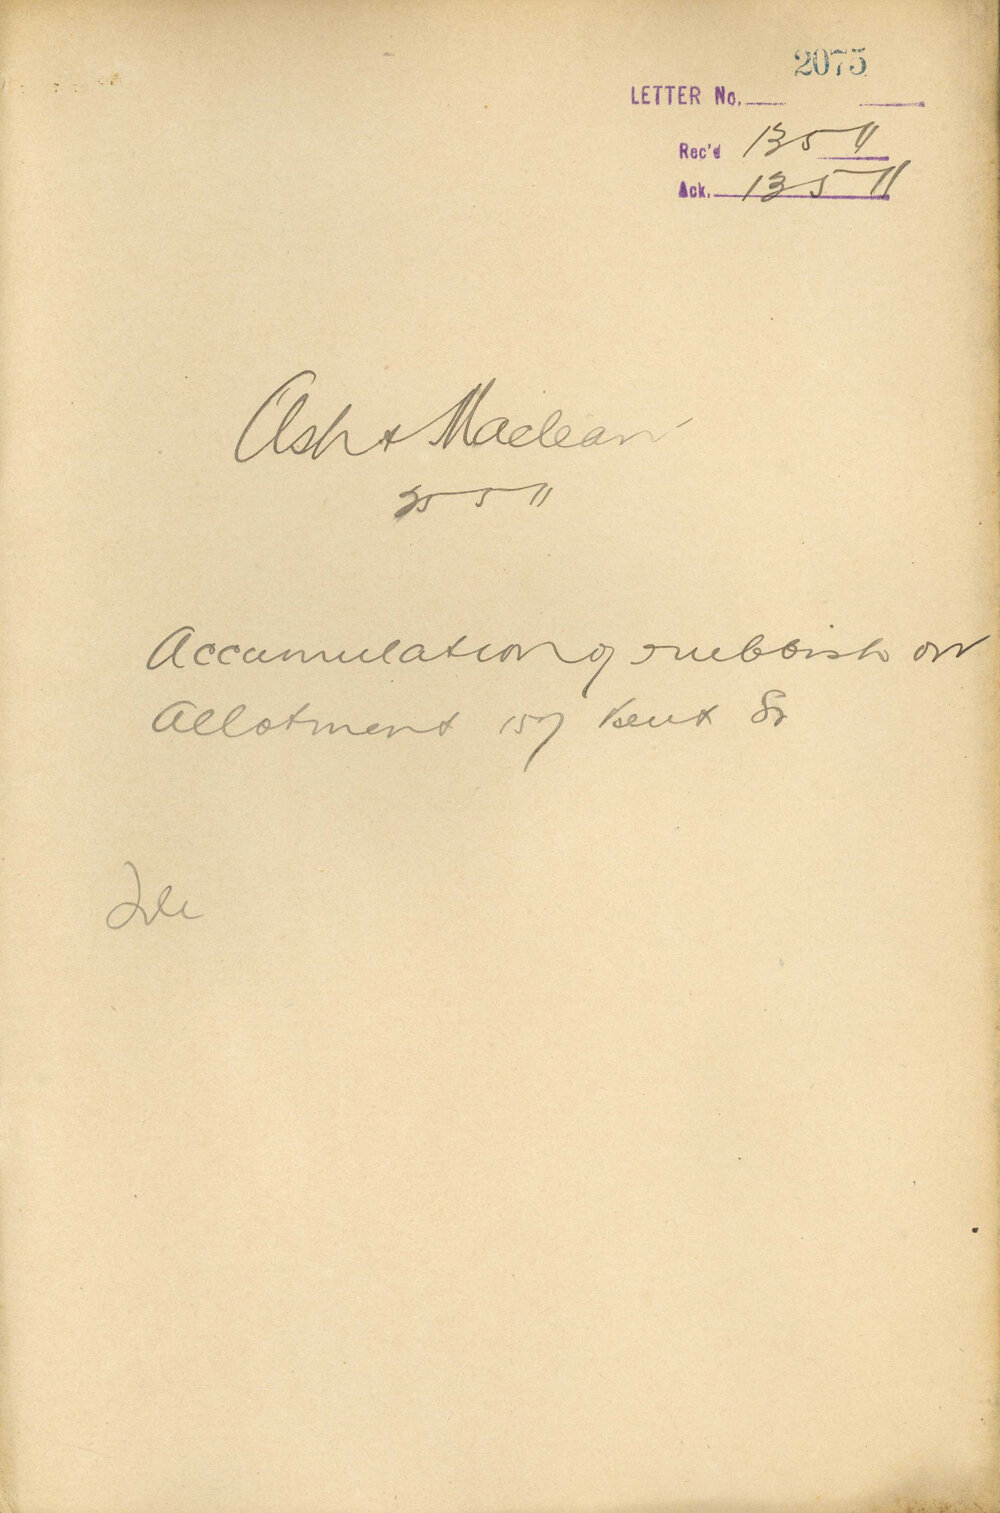 2075
LETTER No.
Rec'd 13 5 11
Ack. 13 5 11
Ash & Maclean
5 11
Accumulation of rubbish on
Allotment 157 Kent St